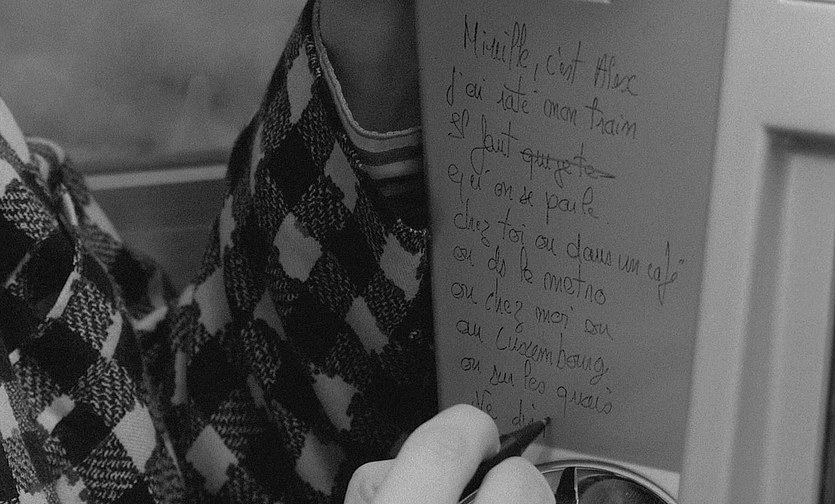 Mireille, c'est Alex
j'ai raté mon train
Il faut
qu'on se parle
chez toi ou dans un café
ou ds le metro
ou chez moi ou
au Luxembourg
ou sur les quais